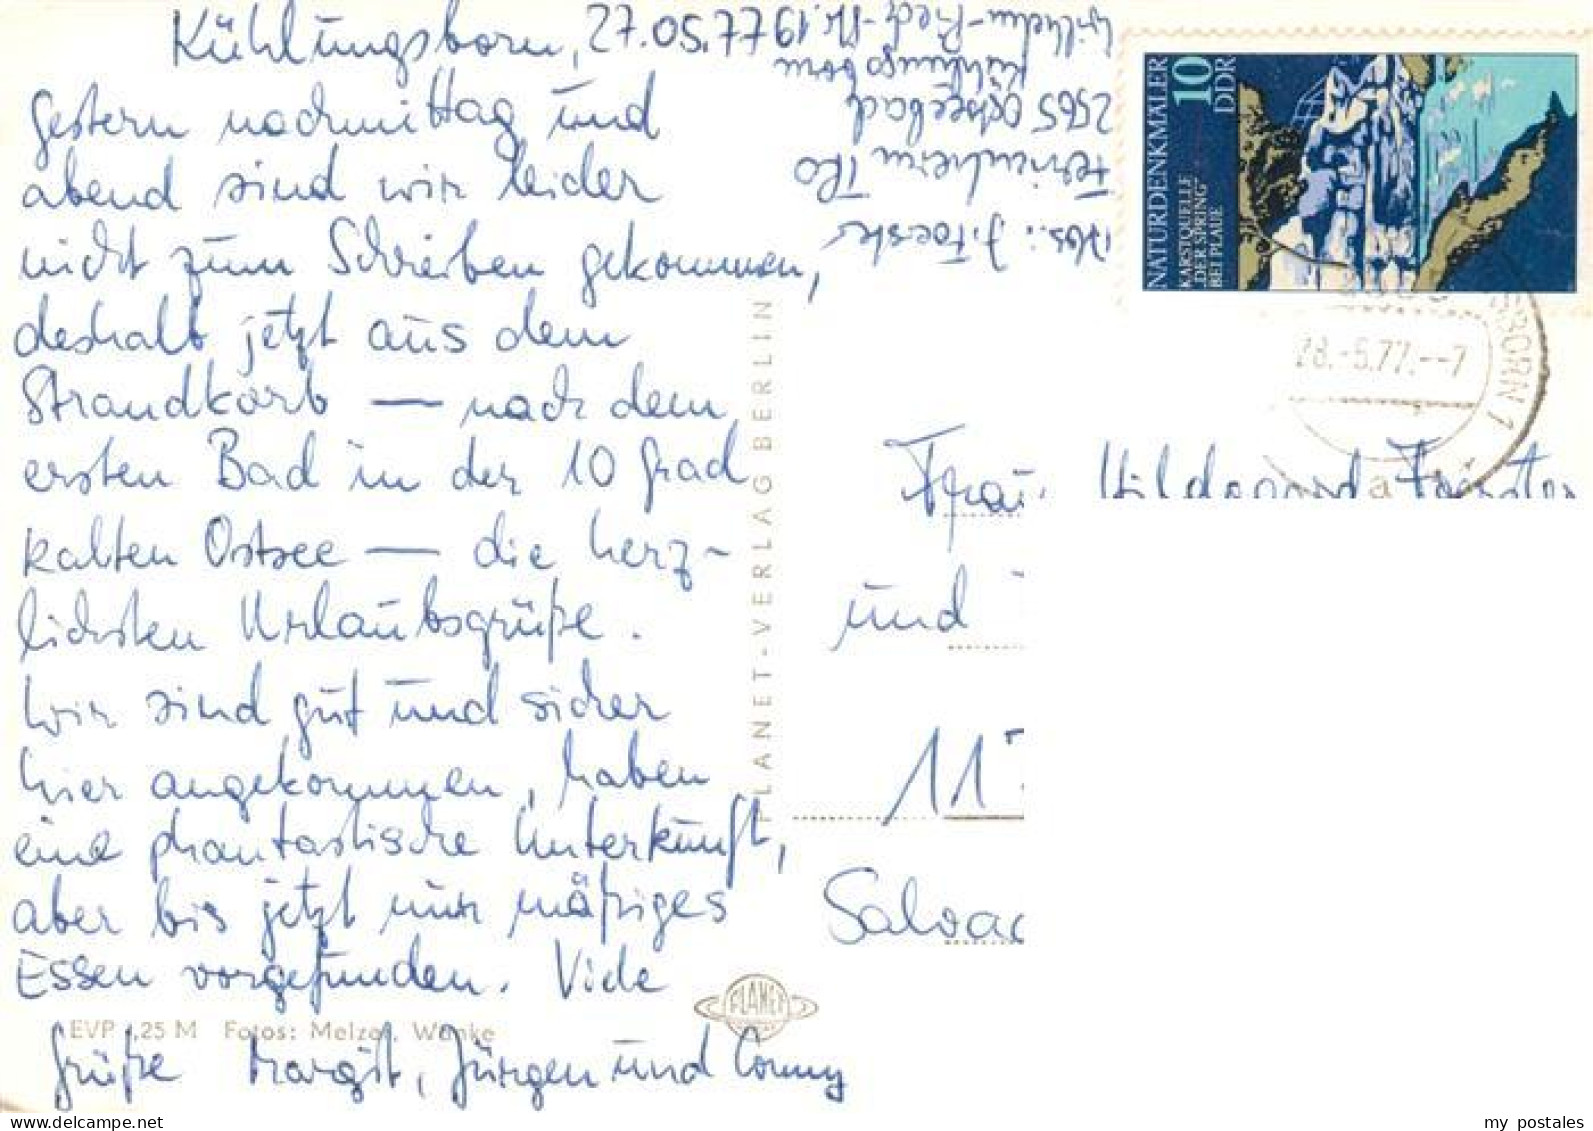 Kühlungsborn, 22.05.77
Gestern nachmittag und
abend sind wir leider
nicht zum Schreiben gekommen,
deshalb jetzt aus dem
Strandkorb — nach dem
ersten Bad in der 10 Grad
kalten Ostsee — die herz-
lichsten Urlaubsgrüße.
Wir sind gut und sicher
hier angekommen, haben
eine phantastische Unterkunft,
aber bis jetzt nur mäßiges
Essen vorgefunden. Viele
Grüße Margit, Jürgen und Conny
EVP ,25 M Fotos: Melzer, Wánke
PLANET-VERLAG BERLIN
PLANET
Abs.: J. Foerster
Ferienheim
2565 Ostseebad
Kühlungsborn
NATURDENKMÄLER
KARSTQUELLE
„DER SPRING"
BEI PLAUE
10
DDR
SBORN 1
28.-5.77.--7
a
Frau Hildegard Foerster
und
11
Salvac
my postales